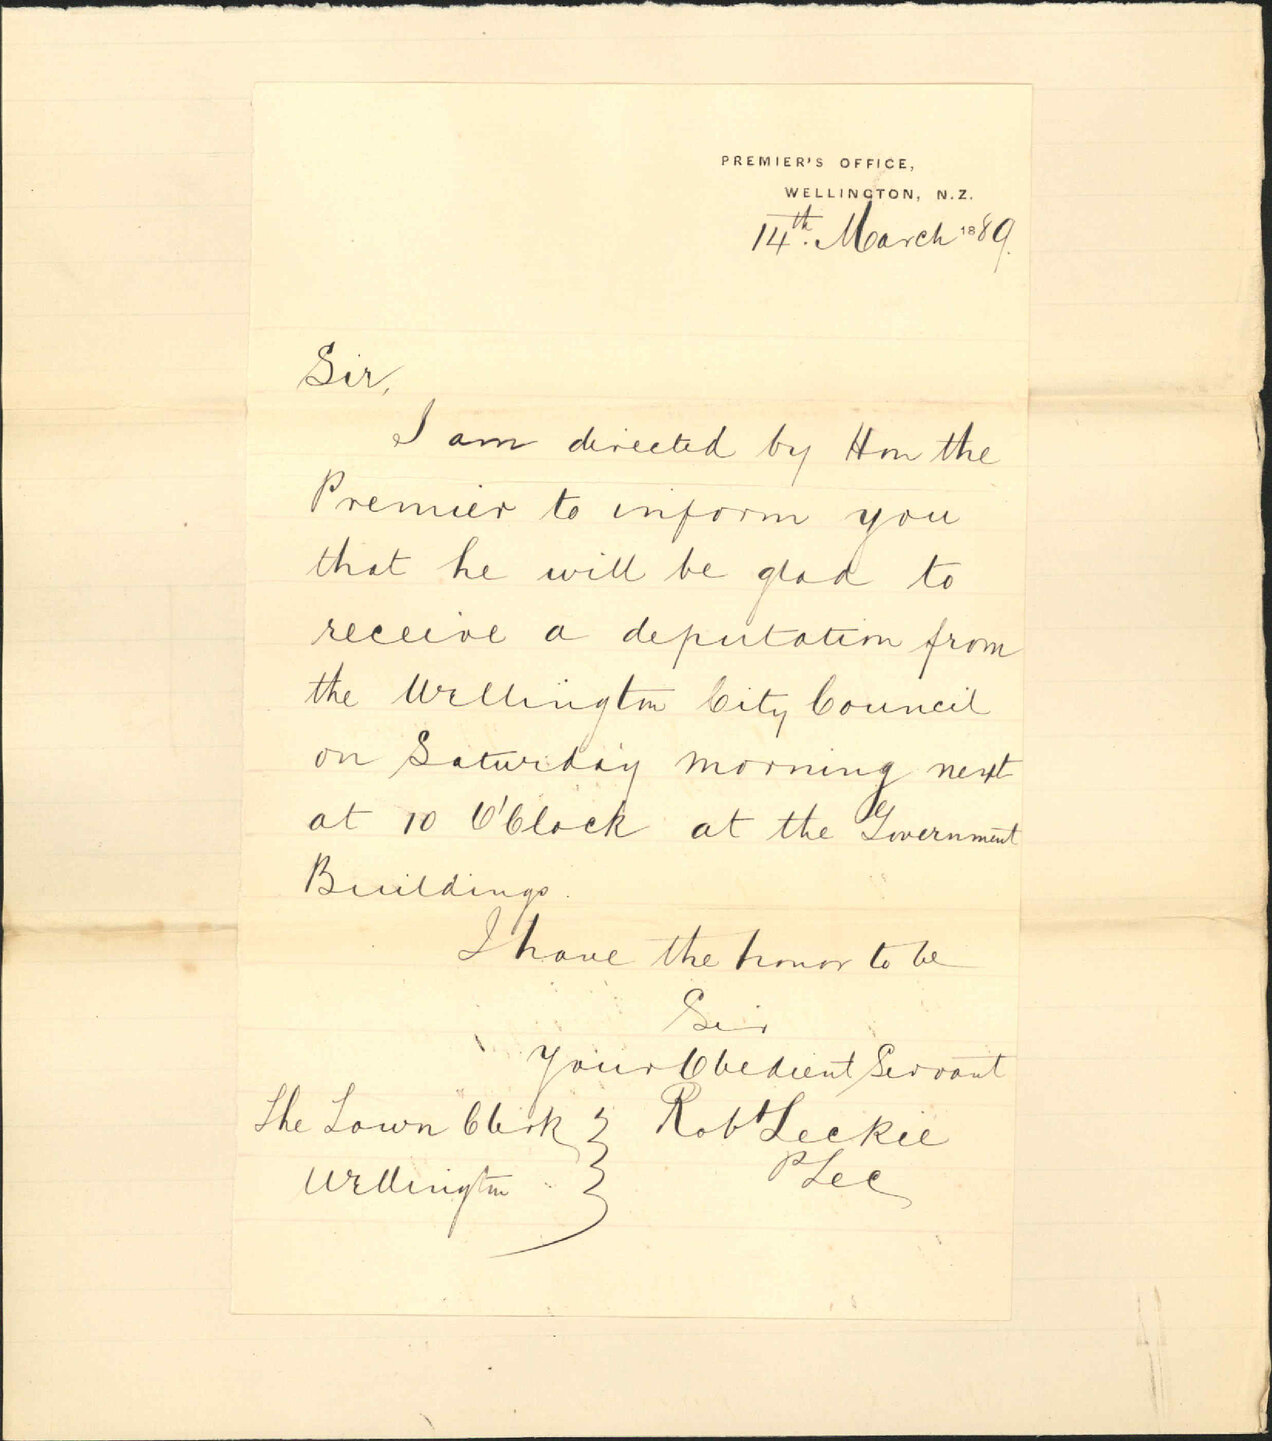 PREMIER'S OFFICE,
WELLINGTON, N.Z.
14th. March 1889.
Sir,
I am directed by Hon the
Premier to inform you
that he will be glad to
receive a deputation from
the Wellington City Council
on Saturday morning next
at 10 O'Clock at the Government
Buildings.
I have the honor to be
Sir
Your Obedient Servant
Robt Leckie
P Sec
The Town Clerk
Wellington